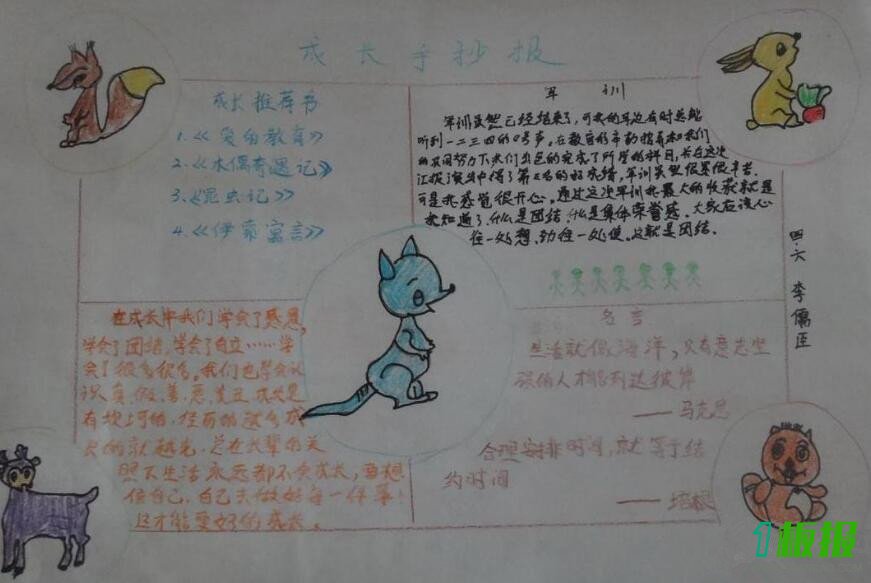 成长手抄报
成长推荐书
1.《爱的教育》
2.《木偶奇遇记》
3.《昆虫记》
4.《伊索寓言》
军训
军训虽然已经结束了，可我的耳边有时总能
听到一二三四的口号声。在教官的辛勤指导和我们
的共同努力下我们出色的完成了所学的科目，并在这次
汇报演出中得了第 名的好成绩，军训虽然很累很辛苦，
可是我感觉很开心。通过这次军训我最大的收获就是
我知道了，什么是团结，什么是集体荣誉感。大家应该心
往一处想，劲往一处使。这就是团结。
四.六 李儒臣
在成长中我们学会了感恩，
学会了团结，学会了自立……学
会了很多很多。我们也学会认
识真、假、善、恶、美、丑，成长是
有坎坷的，经历的越多成
长的就越光，总在长辈的关
照下生活永远都不会成长，要想
信自己，自己去做好每一件事！
这才能更好的成长。
名言
生活就像海洋，只有意志坚
强的人才能到达彼岸
——马克思
合理安排时间，就等于结
约时间
——培根
1板报